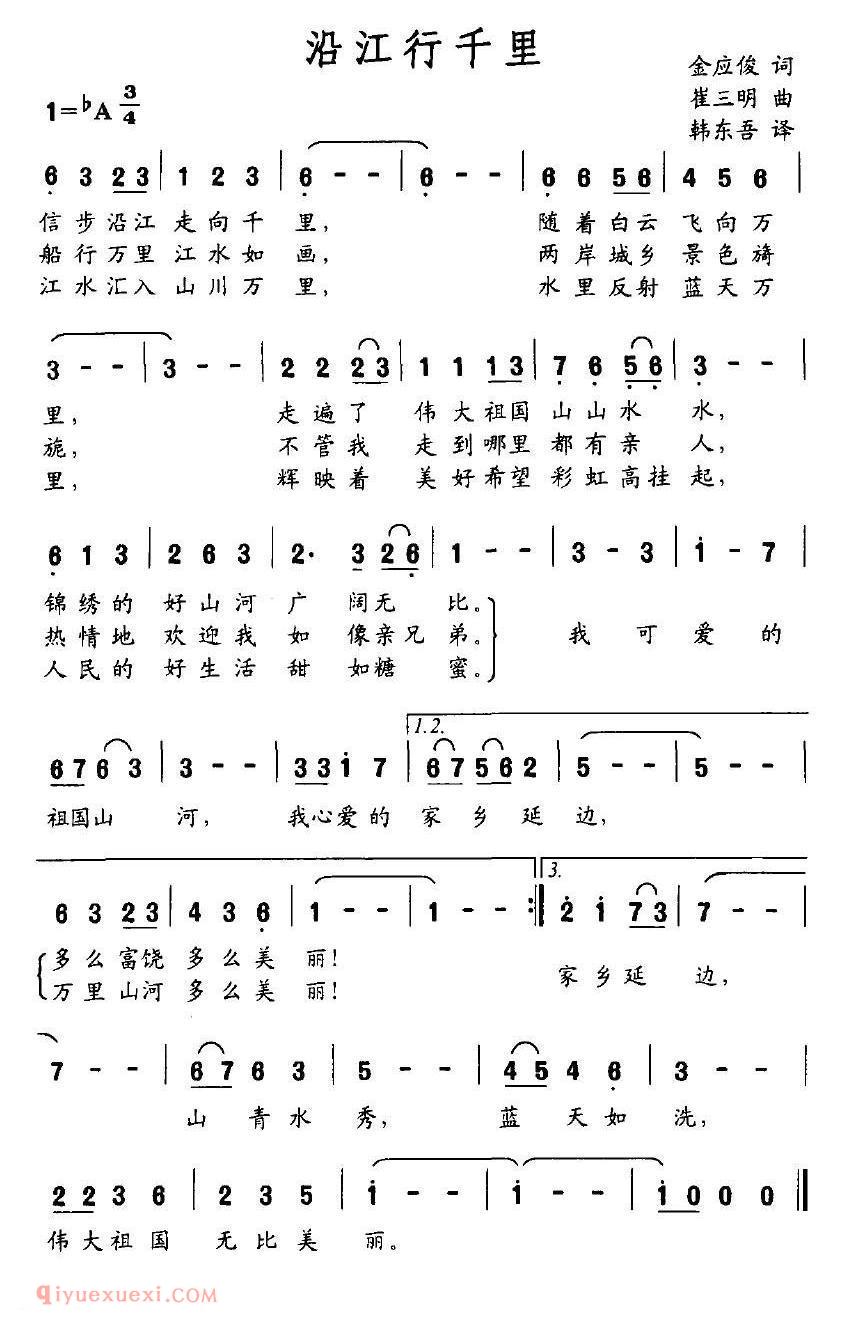 沿江行千里
金应俊 词
1=♭A 3/4
崔三明 曲
韩东吾 译
6 3 2 3 | 1 2 3 | 6 - - | 6 - - | 6 6 5 6 | 4 5 6 |
信步沿江 走向千 里, 随着白云 飞向万
船行万里 江水如 画, 两岸城乡 景色旖
江水汇入 山川万 里, 水里反射 蓝天万
3 - - | 3 - - | 2 2 2 3 | 1 1 1 3 | 7 6 5 6 | 3 - - |
里, 走遍了 伟大祖国 山山水 水,
旎, 不管我 走到哪里 都有亲 人,
里, 辉映着 美好希望 彩虹高挂 起,
6 1 3 | 2 6 3 | 2· 3 2 6 | 1 - - | 3 - 3 | i - 7 |
锦绣的 好山河 广 阔无 比。
热情地 欢迎我 如 像亲兄 弟。 我 可 爱 的
人民的 好生活 甜 如糖 蜜。
1.2.
6 7 6 3 | 3 - - | 3 3 i 7 | 6 7 5 6 2 | 5 - - | 5 - - |
祖国山 河, 我心爱的 家 乡 延 边,
3.
6 3 2 3 | 4 3 6 | 1 - - | 1 - - :| 2 i 7 3 | 7 - - |
多么富饶 多么美 丽!
万里山河 多么美 丽!
家乡延 边,
7 - - | 6 7 6 3 | 5 - - | 4 5 4 6 | 3 - - |
山 青 水 秀, 蓝 天 如 洗,
2 2 3 6 | 2 3 5 | i - - | i - - | i 0 0 0 ‖
伟大祖国 无比美 丽。
qiyuexuexi.com